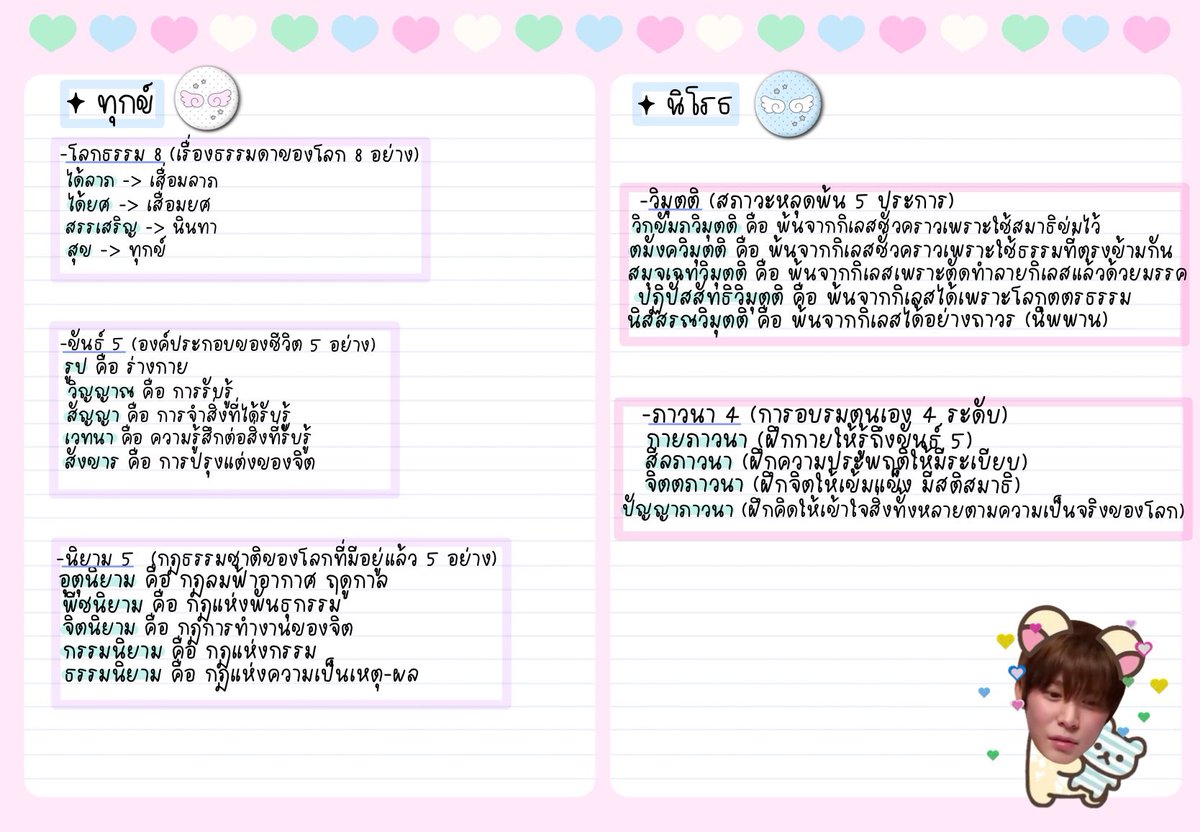 ✦ ทุกข์
-โลกธรรม 8 (เรื่องธรรมดาของโลก 8 อย่าง)
ได้ลาภ -> เสื่อมลาภ
ได้ยศ -> เสื่อมยศ
สรรเสริญ -> นินทา
สุข -> ทุกข์
-ขันธ์ 5 (องค์ประกอบของชีวิต 5 อย่าง)
รูป คือ ร่างกาย
วิญญาณ คือ การรับรู้
สัญญา คือ การจำสิ่งที่ได้รับรู้
เวทนา คือ ความรู้สึกต่อสิ่งที่รับรู้
สังขาร คือ การปรุงแต่งของจิต
-นิยาม 5 (กฎธรรมชาติของโลกที่มีอยู่แล้ว 5 อย่าง)
อุตุนิยาม คือ กฎลมฟ้าอากาศ ฤดูกาล
พีชนิยาม คือ กฎแห่งพันธุกรรม
จิตนิยาม คือ กฎการทำงานของจิต
กรรมนิยาม คือ กฎแห่งกรรม
ธรรมนิยาม คือ กฎแห่งความเป็นเหตุ-ผล
✦ นิโรธ
-วิมุตติ (สภาวะหลุดพ้น 5 ประการ)
วิกขัมภวิมุตติ คือ พ้นจากกิเลสชั่วคราวเพราะใช้สมาธิข่มไว้
ตมังควิมุตติ คือ พ้นจากกิเลสชั่วคราวเพราะใช้ธรรมที่ตรงข้ามกัน
สมุจเฉทวิมุตติ คือ พ้นจากกิเลสเพราะตัดทำลายกิเลสแล้วด้วยมรรค
ปฏิปัสสัทธิวิมุตติ คือ พ้นจากกิเลสได้เพราะโลกุตตรธรรม
นิสสรณวิมุตติ คือ พ้นจากกิเลสได้อย่างถาวร (นิพพาน)
-ภาวนา 4 (การอบรมตนเอง 4 ระดับ)
กายภาวนา (ฝึกกายให้รู้ถึงขันธ์ 5)
สีลภาวนา (ฝึกความประพฤติให้มีระเบียบ)
จิตตภาวนา (ฝึกจิตให้เข้มแข็ง มีสติสมาธิ)
ปัญญาภาวนา (ฝึกคิดให้เข้าใจสิ่งทั้งหลายตามความเป็นจริงของโลก)